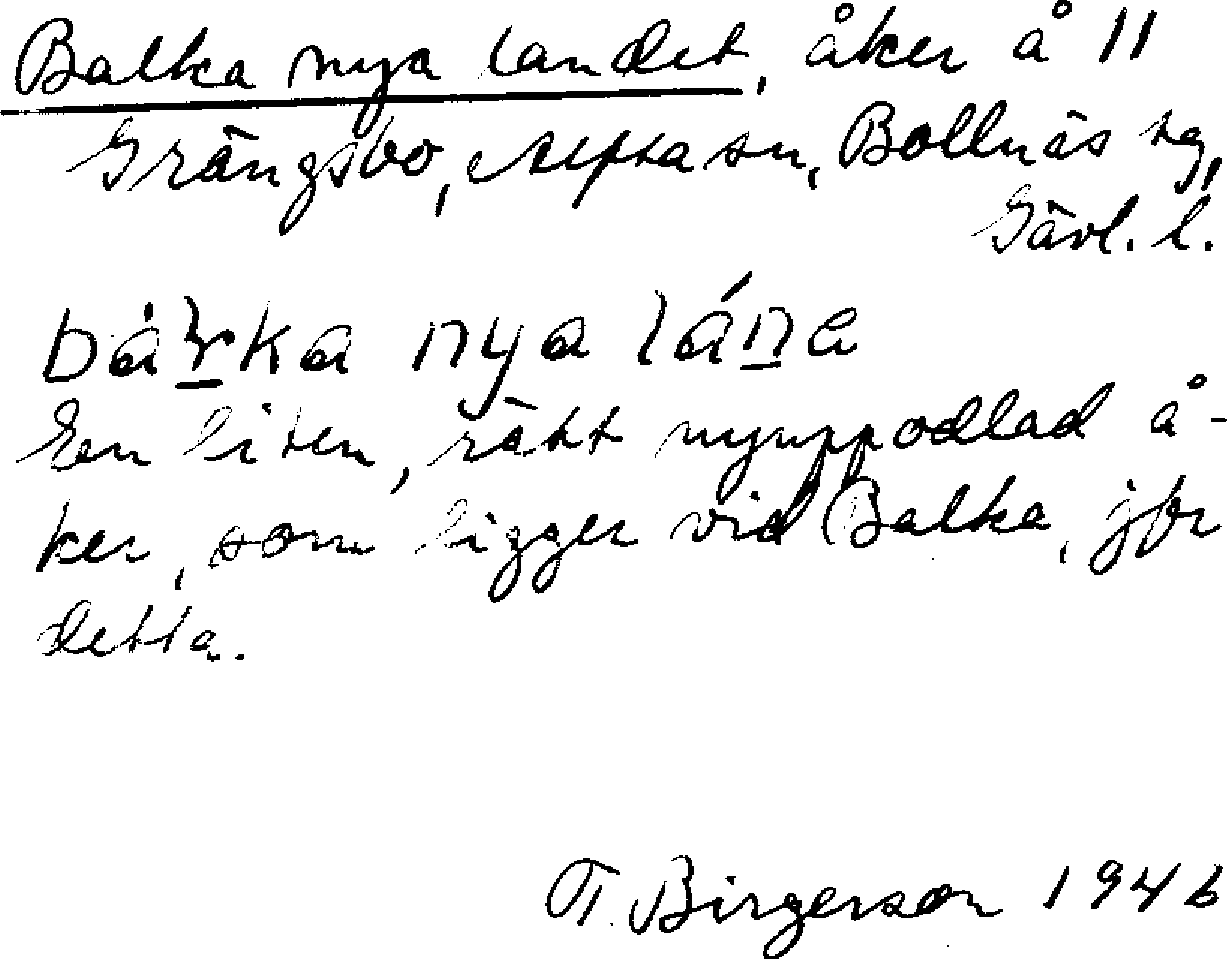 Balka nya landet, åker å 11
Grängsbo, Alfta sn, Bollnäs tg,
Gävl. l.
nya
En liten, rätt nyuppodlad å-
ker, som ligger vid Balka, jfr
detta.
T. Birgerson 1946